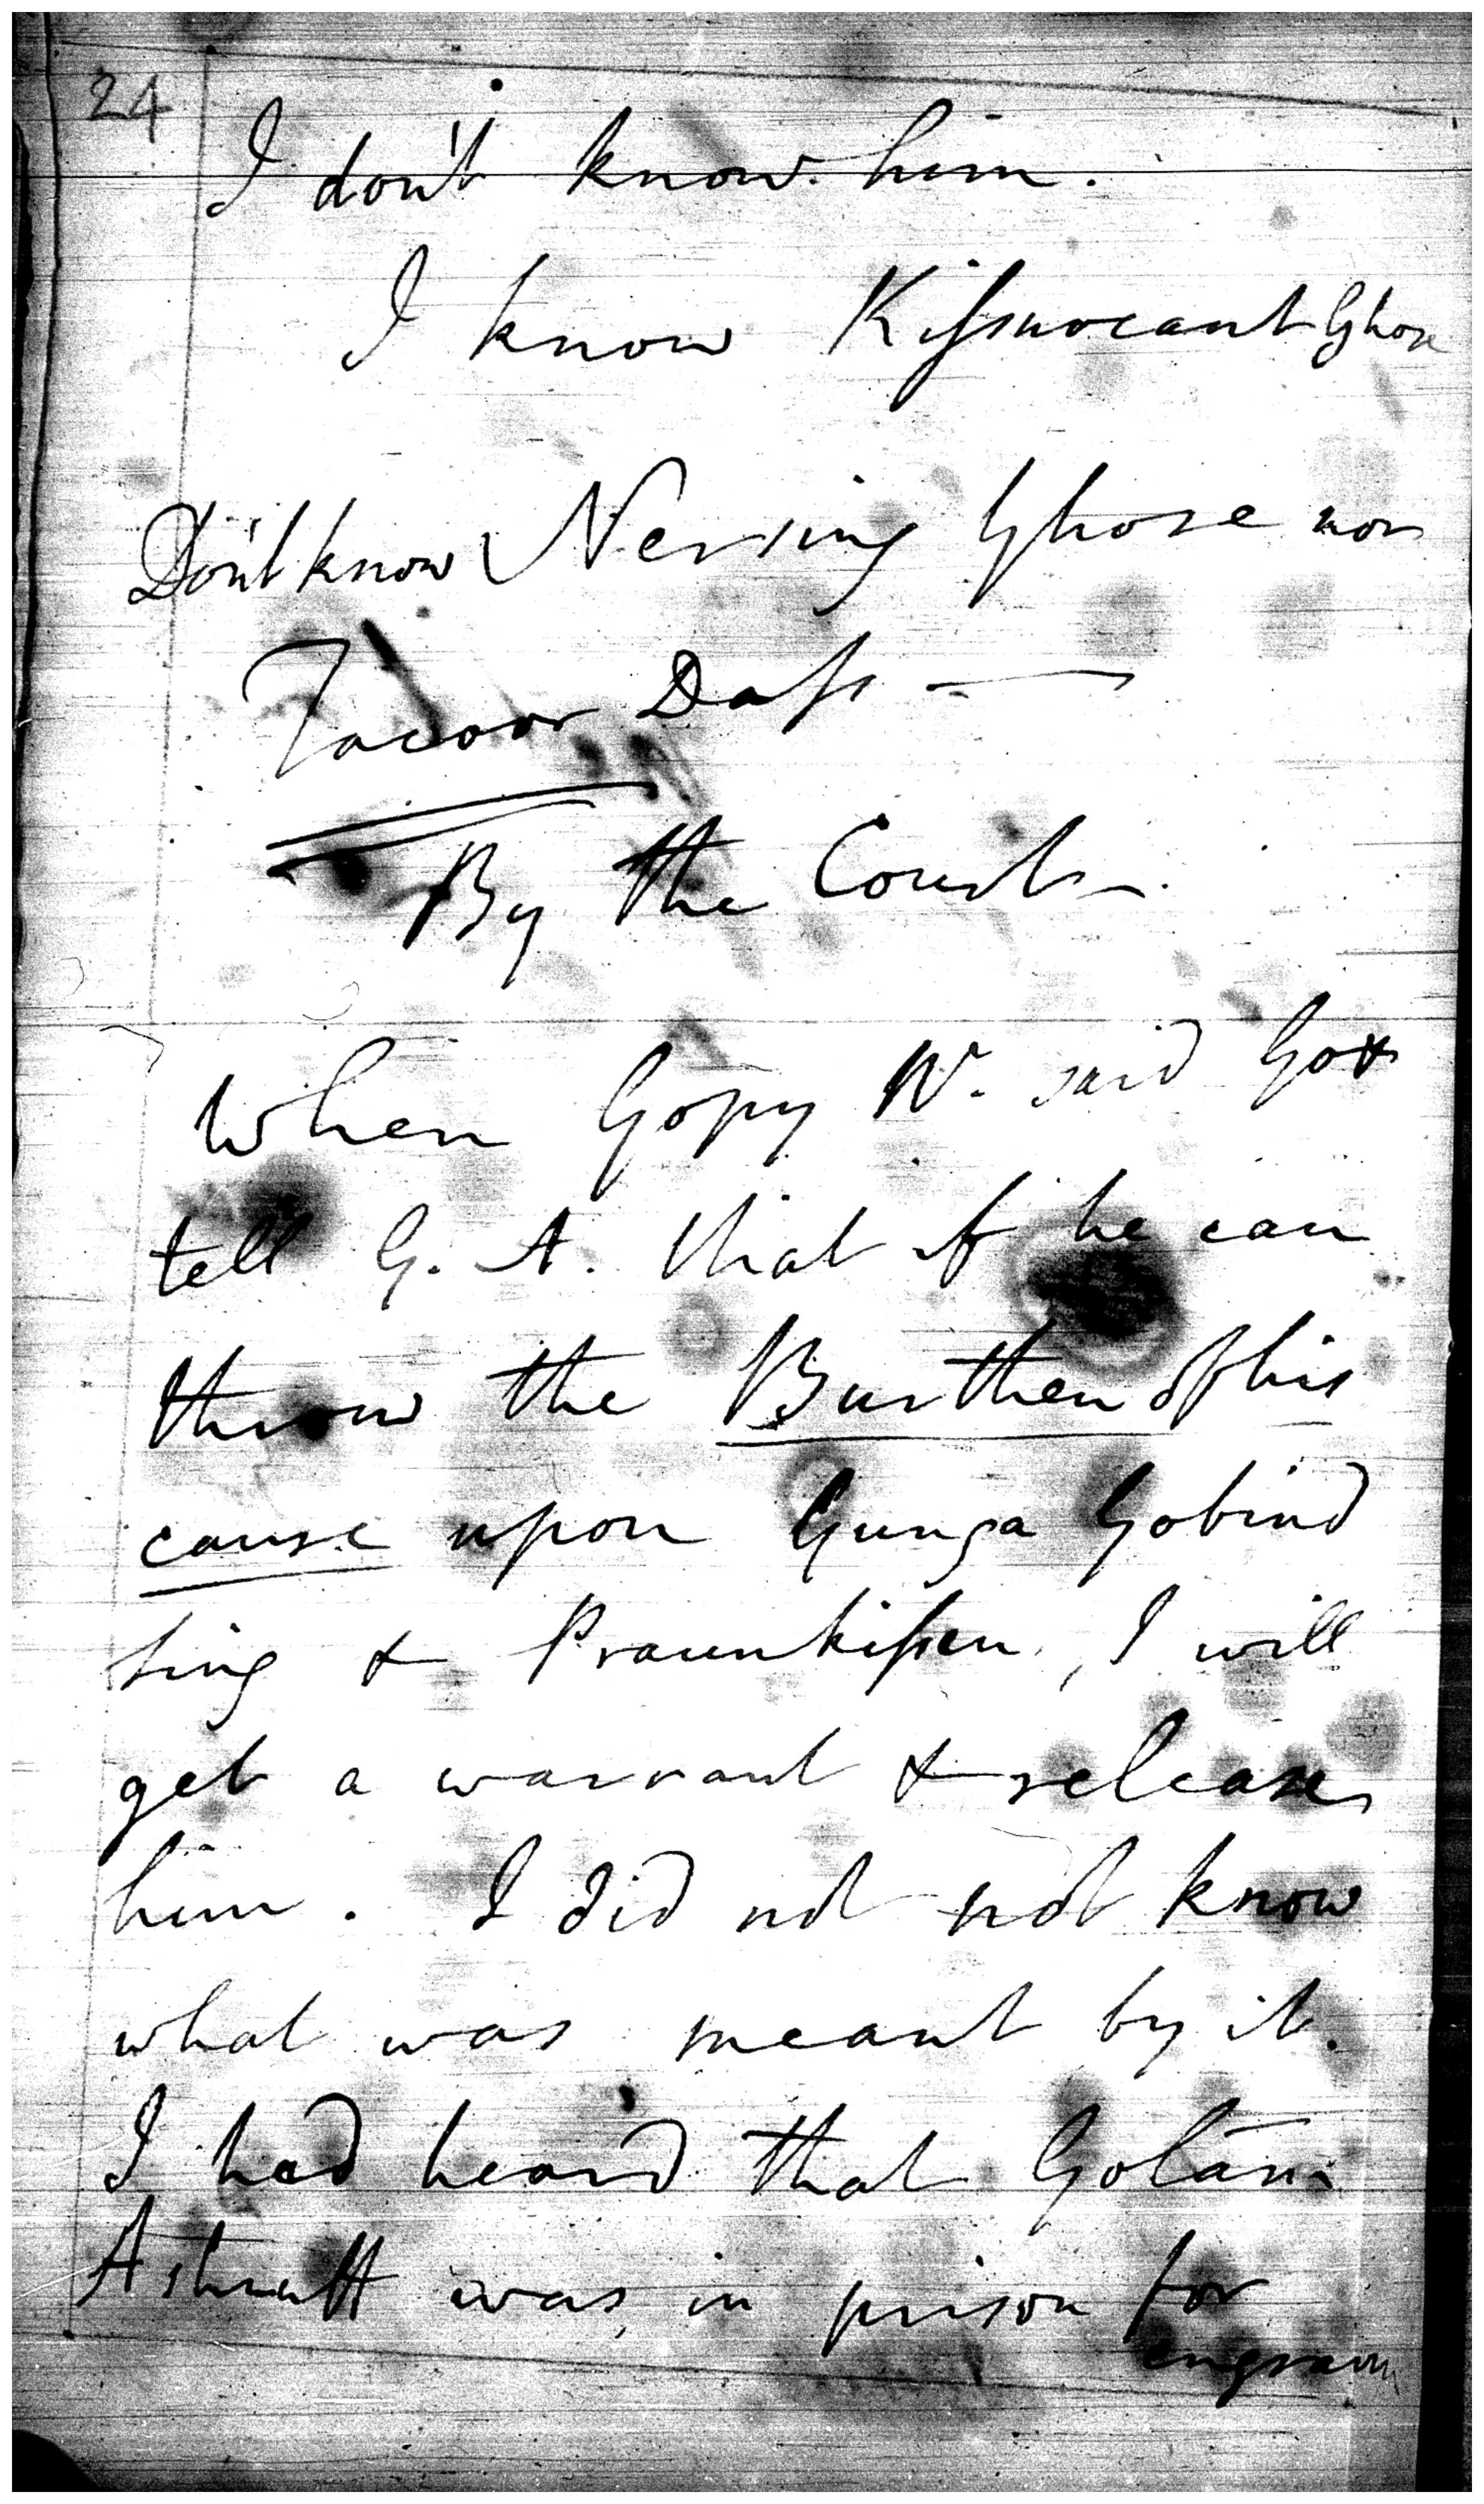 24
I don't know him.
I know Kissnocant Ghose
Don't know Nersing Ghose nor
Tacoor Dass —
By the Court —
When Gopy N. said Go &
tell G. A. that if he can
throw the Burthen of his
cause upon Gunga Gobind
Sing & Praunkissen, I will
get a warrant & release
him. I did not not know
what was meant by it.
I had heard that Golam
Ashruff was in prison for